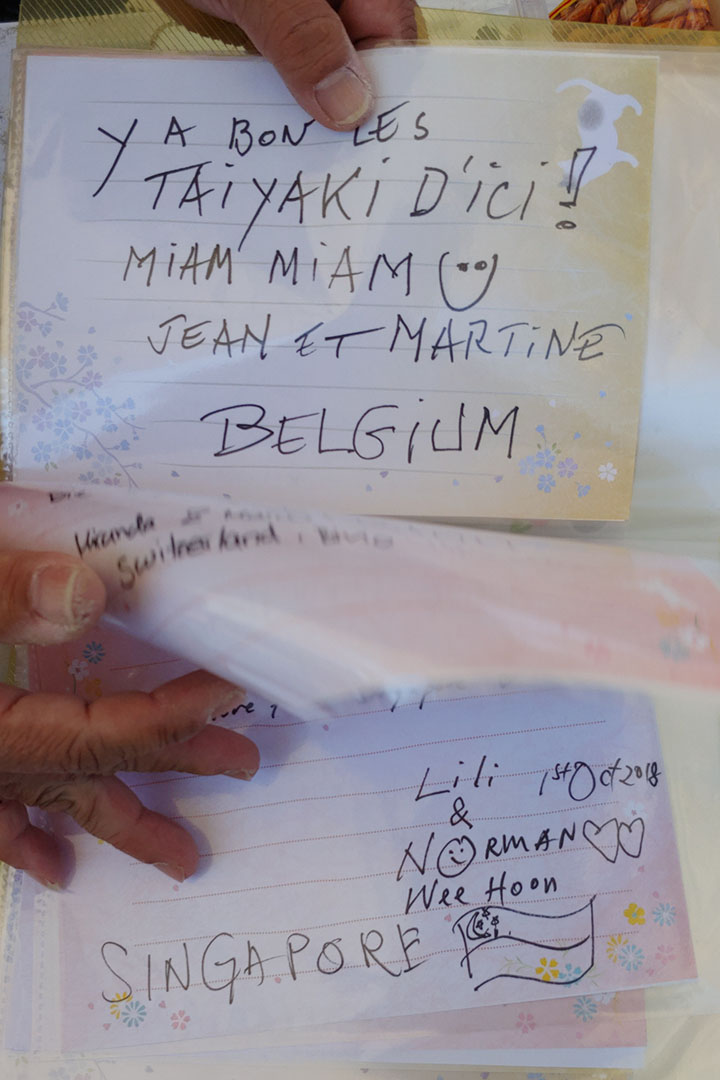 YA BON LES
TAiYAKi D'iCi !
MiAM MiAM
JEAN ET MARTiNE
BELGiUM
Switzerland
Lili 1st Oct 2018
&
NORMAN
Wee Hoon
SINGAPORE